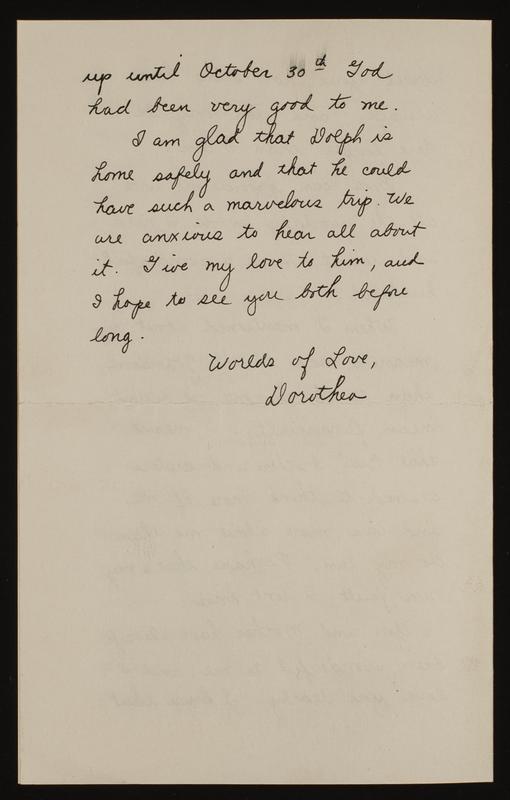 up until October 30th God
had been very good to me.
I am glad that Dolph is
home safely and that he could
have such a marvelous trip. We
are anxious to hear all about
it. Give my love to him, and
I hope to see you both before
long.
Worlds of Love,
Dorothea